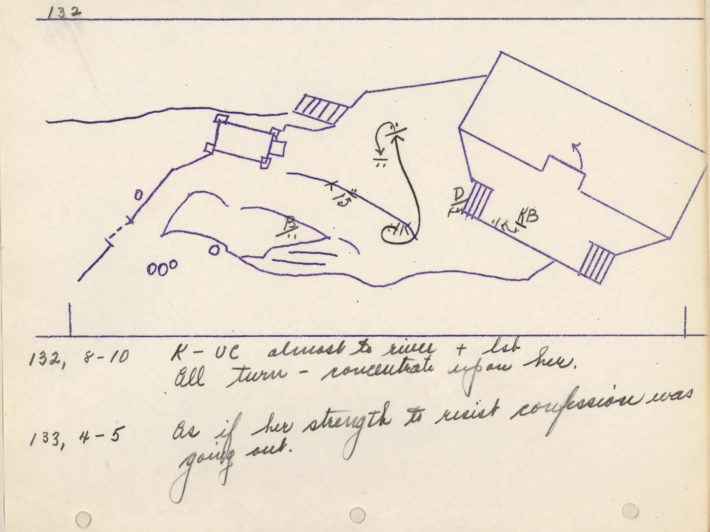 132
K
15"
B
D
KB
K
132, 8-10 K - UC almost to river +
All turn - concentrate upon her.
133, 4-5 As if her strength to resist confession was
going out.